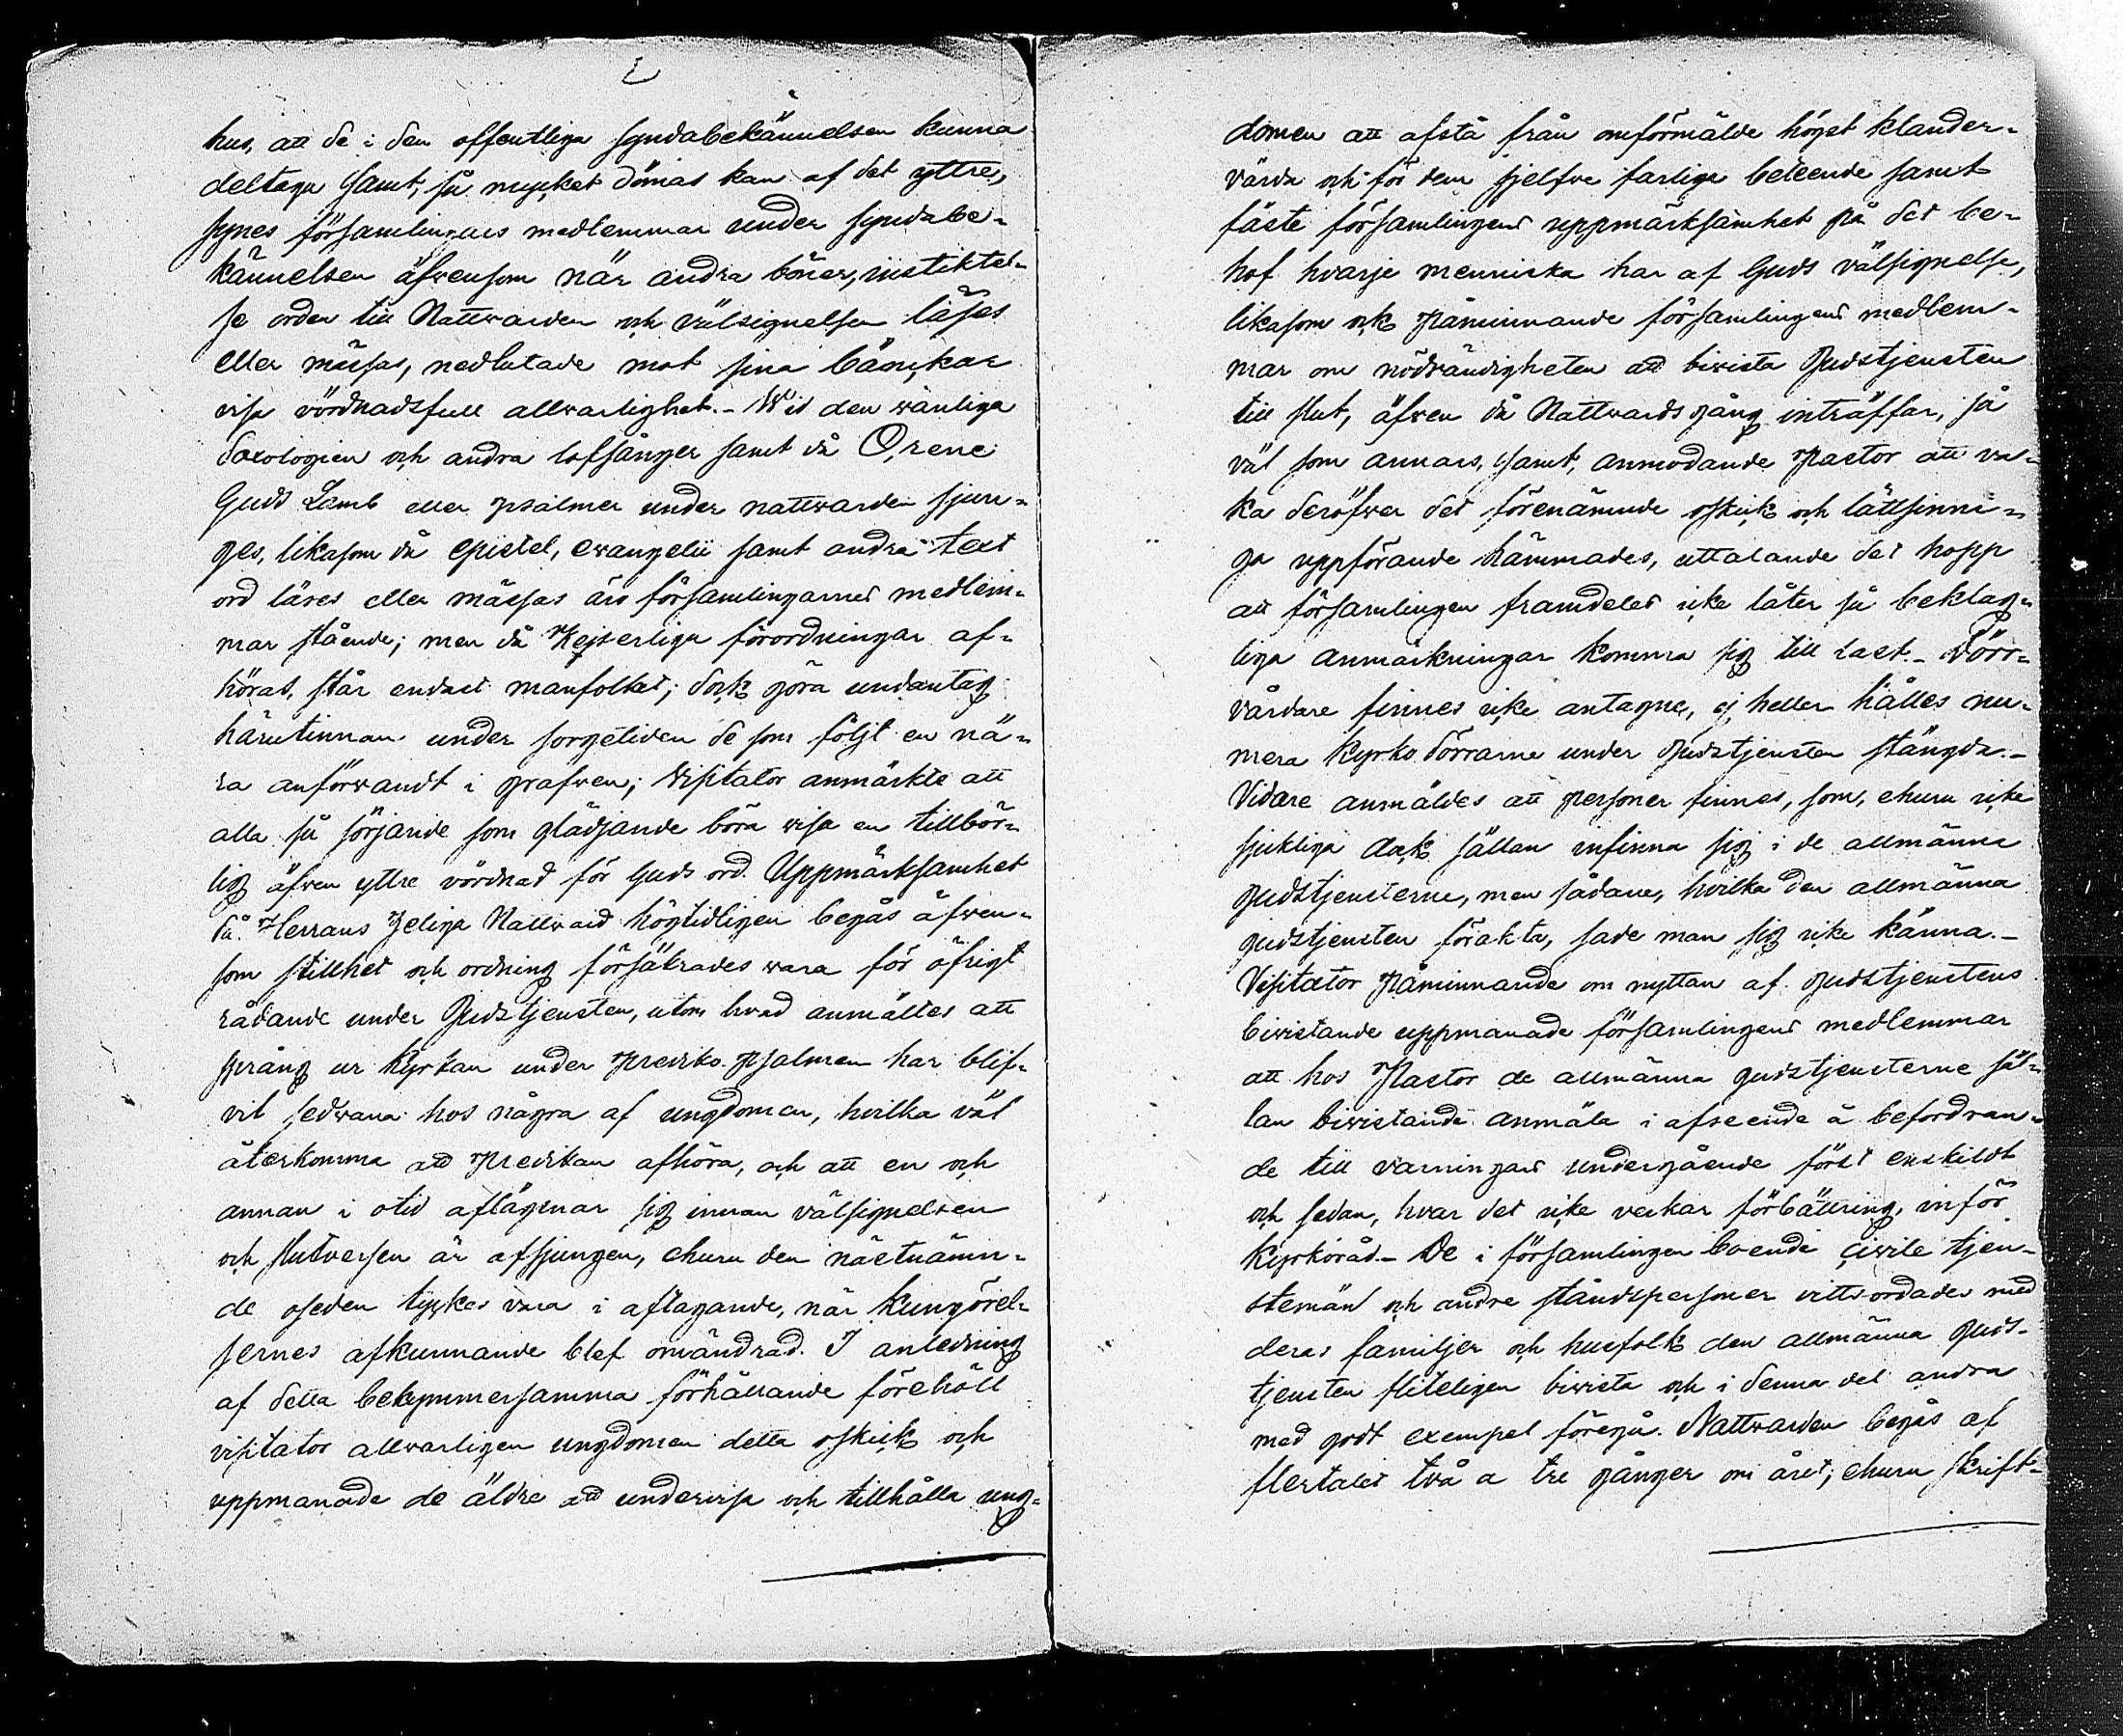 hus, att de i den offentliga syndabekännelsen kunna
deltaga samt, så mycket dömas kan af det yttre,
synes församlingens medlemmar under syndabe-
kännelsen äfvensom när andra böner, instiktel-
se orden till Nattwarden och välsignelsen läses
eller mässas, nedlutade mot sina bänkar
visa vördnadsfull allvarlighet. - Wid den wanliga
doxologien och andra lofsånger samt då O, rene
Guds Lamb eller psalmer under nattwarden sjun-
ges, likasom då epistel, evangelii samt andra text
ord läses eller mässas äro församlingarnes medlem-
mar stående; men då Kejserliga förordningar af-
höras, står endast manfolket; dock göra undantag
härutinnan under sorgetiden de som följt en nä-
ra anförwandt i grafven; Visitator anmärkte att
alla så sörjande som glädjande böra visa en tillbör-
lig äfven yttre vördnad för Guds ord. Uppmärksamhet
då Herrans Heliga Nattward högtidligen begås äfwen-
som stillhet och ordning försäkrades wara för öfrigt
rådande under Gudstjensten, utom hvad anmältes att
språng ur Kyrkan under Predikopsalmen har blif-
vit sedwana hos några af ungdomen, hvilka väl
återkomma att Predikan afhöra, och att en och
annan i otid aflägsnar sig innan välsignelsen
och slutversen är afsjungen, churu den nästnämn-
de oseden tyckes vara i aftagande, när Kungörel-
sernes afkunnande blef omändrad. I anledning
af detta bekymmersamma förhållande föreholl
visitator allvarligen ungdomen detta oskick och
uppmanade de äldre att undervisa och tillhålla ung-
domen att afstå från omförmälde högst klander-
värda och för dem sjelfve farliga beteende samt
fäste församlingens uppmärksamhet på det be-
hof hvarje menniska har af Guds välsignelse,
likasom ock påminnande församlingens medlem-
mar om nödvändigheten att bivista Gudstjensten
till slut, äfven då Nattwardsgång inträffar, så
väl som annars, samt, anmodande Pastor att va-
ka deröfwer det förenämnde oskick och lättsinni-
ga uppförande hämmades, uttalande det hopp
att församlingen framdeles icke låter så beklag-
liga anmärkningar komma sig till last. - Dörr-
vårdare finnes icke antagne, ej heller hålles nu-
mera Kyrko dörrarne under Gudstjensten stängda. -
Vidare anmäldes att personer finnes, som, churu icke
sjukliga dock sällan infinna sig i de allmänna
gudstjensterne, men sådane, hvilka den allmänna
gudstjensten förakta, sade man sig icke känna. -
Visitator påminnande om nyttan af gudstjenstens
bivistande uppmanade församlingens medlemmar
att hos Pastor de allmänna gudstjensterne säl-
lan bivistande anmäla i afseende å befordran-
de till varningars undergående först enskildt
och sedan, hvar det icke verkar förbättring, inför
Kyrkoråd. - De i församlingen boende civile tjen-
stemän och andre ståndspersoner vittsordades med
deras familjer och husfolk den allmänna guds-
tjensten fliteligen bivista och i denna del andra
med godt exempel föregå. Nattwarden begås af
flertalet två a tre gånger om året; churu skrift-